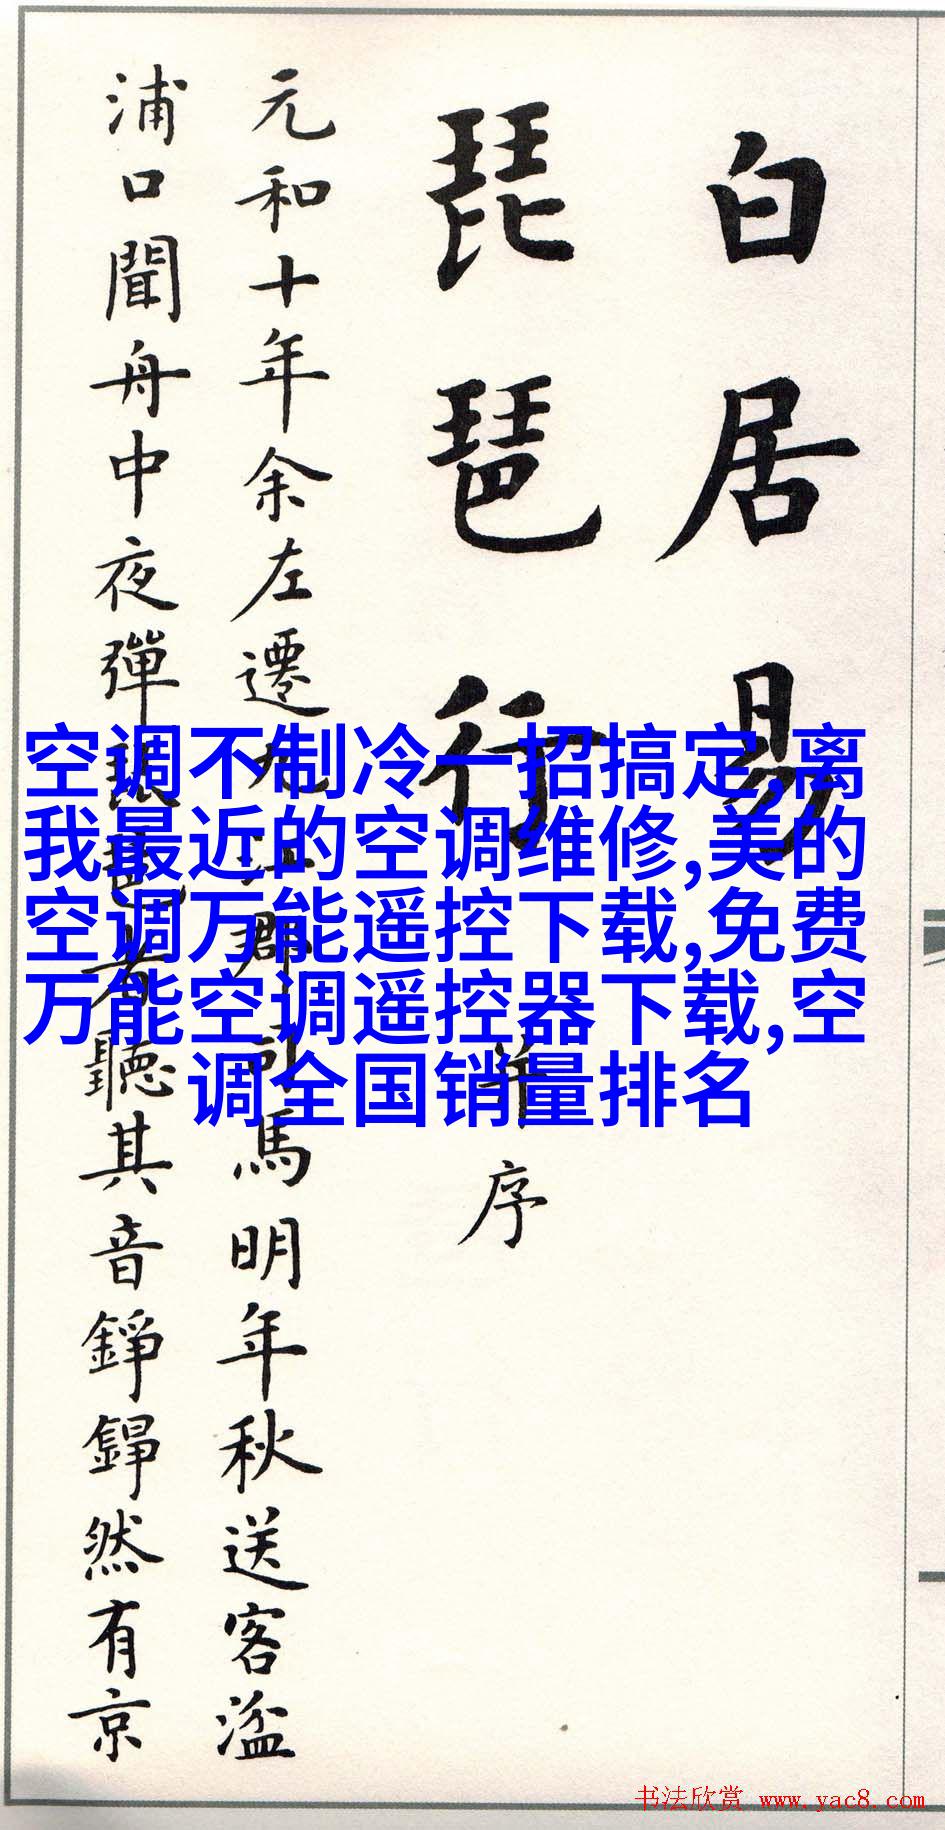 白居易
琵琶行 并序
元和十年余左遷九江郡司馬明年秋送客湓
浦口聞舟中夜彈琵琶者聽其音錚錚然有京
空调不制冷一招搞定,离
我最近的空调维修,美的
空调万能遥控下载,免费
万能空调遥控器下载,空
调全国销量排名
书法欣赏 www.yac8.com